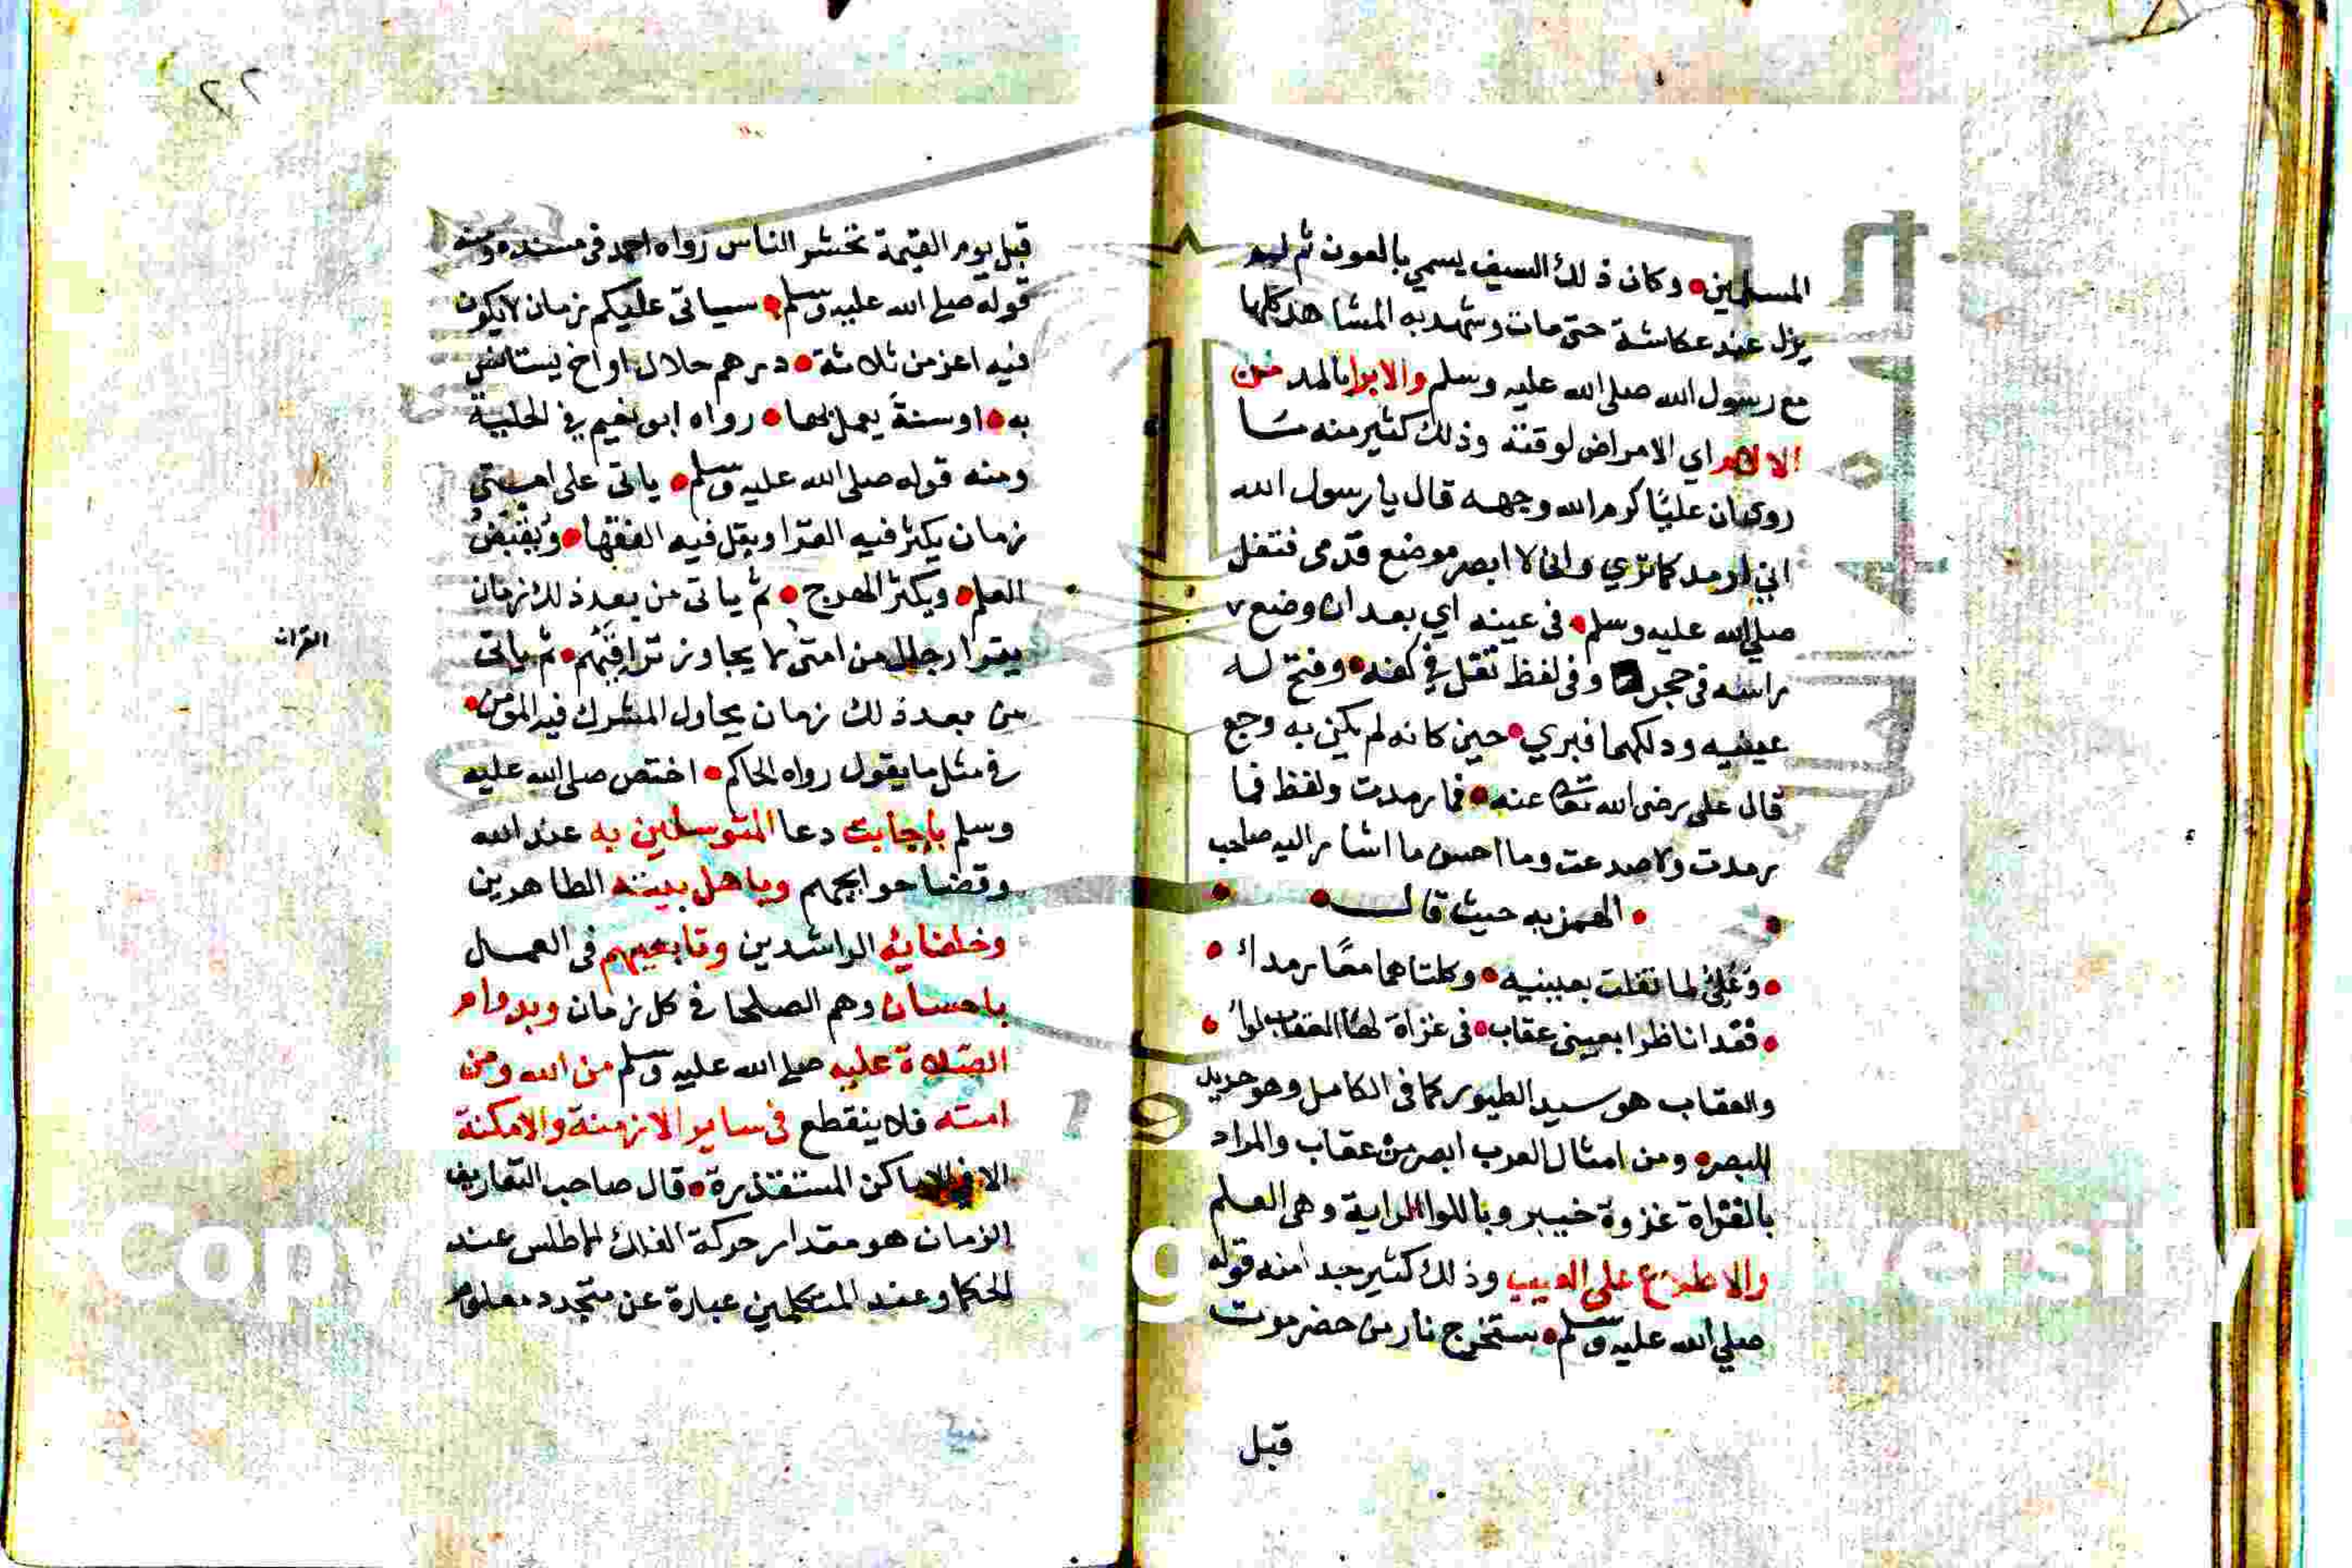 المسلمين وكان ذلك السيف يسمي بالعون ثم لم
يزل عند عكاشة حتى مات وشهد به المشاهد كلها
مع رسول الله صلى الله عليه وسلم والابرا بالمد من
الالام اي الامراض لوقته وذلك كثير منه ما
روي ان عليًا كرم الله وجهه قال يا رسول الله
اني ارمد كما تري واني لا ابصر موضع قدمى فتفل
صلي الله عليه وسلم في عينه اي بعد ان وضع
راسه في حجره وفى لفظ تفل في كفه وفتح له
عينيه ودلكهما فبري حين كانه لم يكن به وجع
قال على رضى الله تعالى عنه فما رمدت ولفظ فما
رمدت ولا صدعت وما احسن ما اشار اليه صاحب
الهمزيه حيث قال
وعلي لما تفلت بعينيه وكلتاهما معًا رمداء
فغدا ناظرا بعيني عقاب في غزاة لها العقاب لواء
والعقاب هو سيد الطيور كما فى الكامل وهو حديد
البصر ومن امثال العرب ابصر من عقاب والمراد
بالغزاة غزوة خيبر وباللوا الراية وهى العلم
والاطلاع على الغيب وذلك كثير جدا منه قوله
صلي الله عليه وسلم ستخرج نار من حضرموت
قبل
٢٢
قبل يوم القيمة تحشر الناس رواه احمد فى مسنده ومنه
قوله صلى الله عليه وسلم سياتى عليكم زمان لا يكون
فيه اعز من ثلاثة درهم حلال او اخ يستانس
به او سنة يعمل بها رواه ابو نعيم في الحلية
ومنه قوله صلى الله عليه وسلم ياتى على امتي
زمان يكثر فيه القرا ويقل فيه الفقها ويقبض
العلم ويكثر الهرج ثم ياتى من بعد ذلك زمان
يقرا رجال من امتى لا يجاوز تراقيهم ثم ياتى
القران
من بعد ذلك زمان يجاول المشرك فيه المؤمن
في مثل ما يقول رواه الحاكم اختص صلى الله عليه
وسلم بإجابت دعا المتوسلين به عند الله
وقضا حوايجهم وباهل بيته الطاهرين
وخلفائه الراشدين وتابعيهم فى العمل
باحسان وهم الصلحا في كل زمان وبدوام
الصلاة عليه صلى الله عليه وسلم من الله ومن
امته فلا ينقطع فى ساير الازمنة والامكنة
الا في الاماكن المستقذرة قال صاحب التعاريف
الزمان هو مقدار حركة الفلك الاطلس عند
الحكما وعند المتكلمين عبارة عن متجدد معلوم